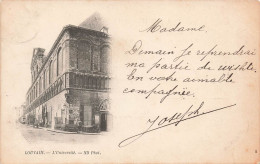 Madame.
Demain je reprendrai
ma partie de wishte.
En votre aimable
compagnée.
Joseph
LOUVAIN. - L'Université. - ND Phot.